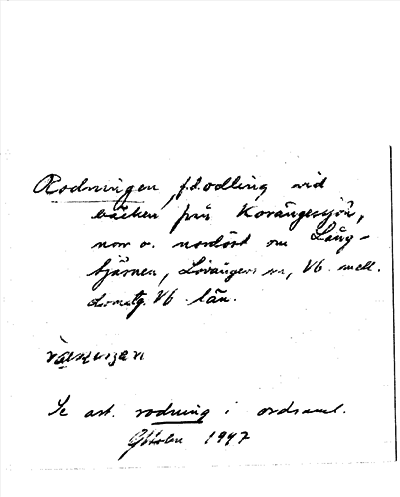 Rodningen, f.d. odling vid
bäcken från Korängessjön,
norr o. nordöst om Lång-
tjärnen, Lövångers sn, Vb. mell.
domsg. Vb. län.
Se art. rodning i ordsaml.
1947